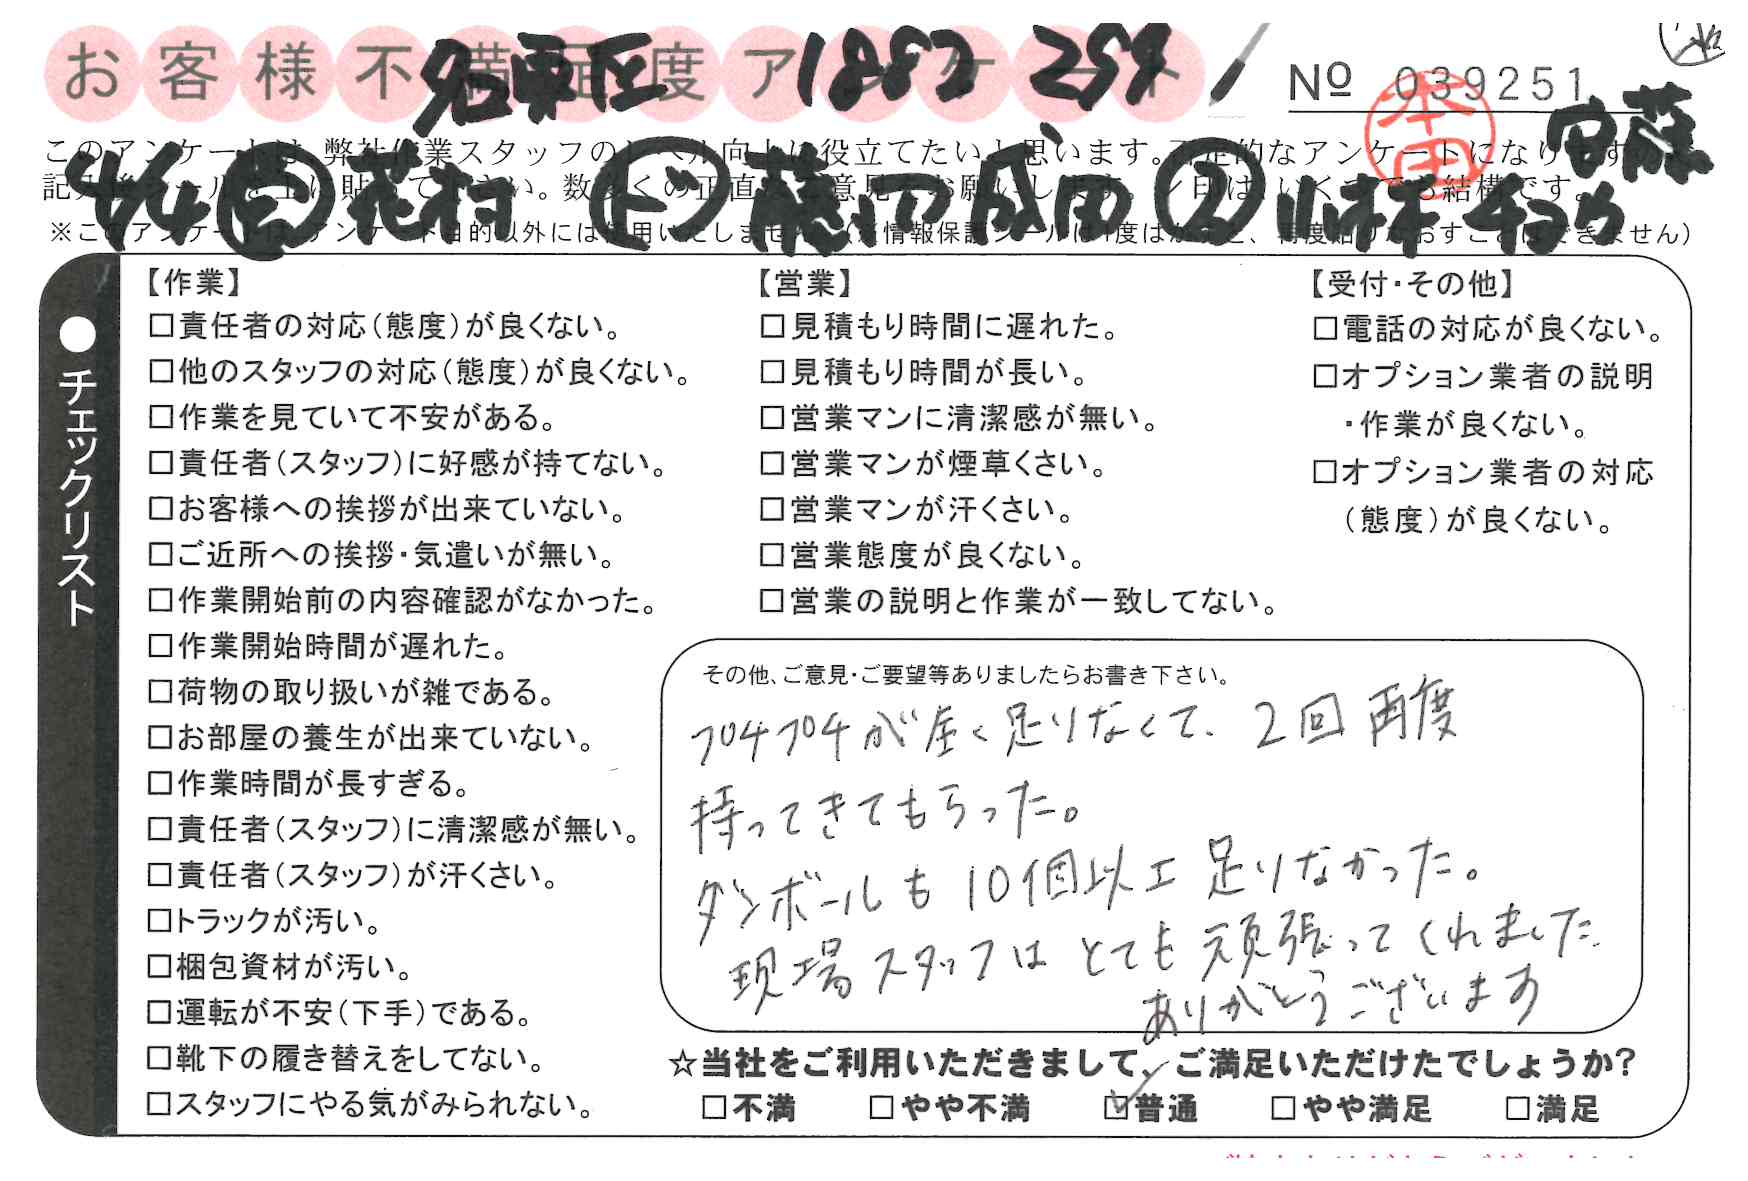 お客様不満足度アンケート
名東区 1882 259
№ 039251
本田
安藤
このアンケートは、弊社作業スタッフのレベル向上に役立てたいと思います。否定的なアンケートになりますが、
記入後シールを上に貼って下さい。数多くの正直なご意見をお願いします。レ印は、いくつでも結構です。
※このアンケートは、アンケート目的以外には使用いたしません。(※情報保護シールは1度はがすと、再度貼りなおすことはできません)
●チェックリスト
【作業】
□責任者の対応(態度)が良くない。
□他のスタッフの対応(態度)が良くない。
□作業を見ていて不安がある。
□責任者(スタッフ)に好感が持てない。
□お客様への挨拶が出来ていない。
□ご近所への挨拶・気遣いが無い。
□作業開始前の内容確認がなかった。
□作業開始時間が遅れた。
□荷物の取り扱いが雑である。
□お部屋の養生が出来ていない。
□作業時間が長すぎる。
□責任者(スタッフ)に清潔感が無い。
□責任者(スタッフ)が汗くさい。
□トラックが汚い。
□梱包資材が汚い。
□運転が不安(下手)である。
□靴下の履き替えをしてない。
□スタッフにやる気がみられない。
【営業】
□見積もり時間に遅れた。
□見積もり時間が長い。
□営業マンに清潔感が無い。
□営業マンが煙草くさい。
□営業マンが汗くさい。
□営業態度が良くない。
□営業の説明と作業が一致してない。
【受付・その他】
□電話の対応が良くない。
□オプション業者の説明
・作業が良くない。
□オプション業者の対応
(態度)が良くない。
その他、ご意見・ご要望等ありましたらお書き下さい。
プチプチが全く足りなくて、2回再度
持ってきてもらった。
ダンボールも10個以上足りなかった。
現場スタッフはとても頑張ってくれました
ありがとうございます
☆当社をご利用いただきまして、ご満足いただけたでしょうか?
□不満 □やや不満 ☑普通 □やや満足 □満足